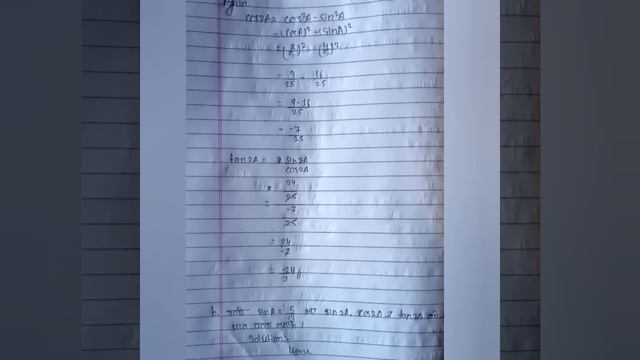 Again
cos2A = cos²A - sin²A
= (cosA)² - (sinA)²
= (3/5)² - (4/5)²
= 9/25 - 16/25
= 9-16/25
= -7/25
tan2A = sin2A/cos2A
= 24/25
-7/25
= 24/-7
= -24/7
h. यदि sinA = 5/13 भए sin2A, cos2A र tan2A को
मान पत्ता लगाउ।
Solution:
Here